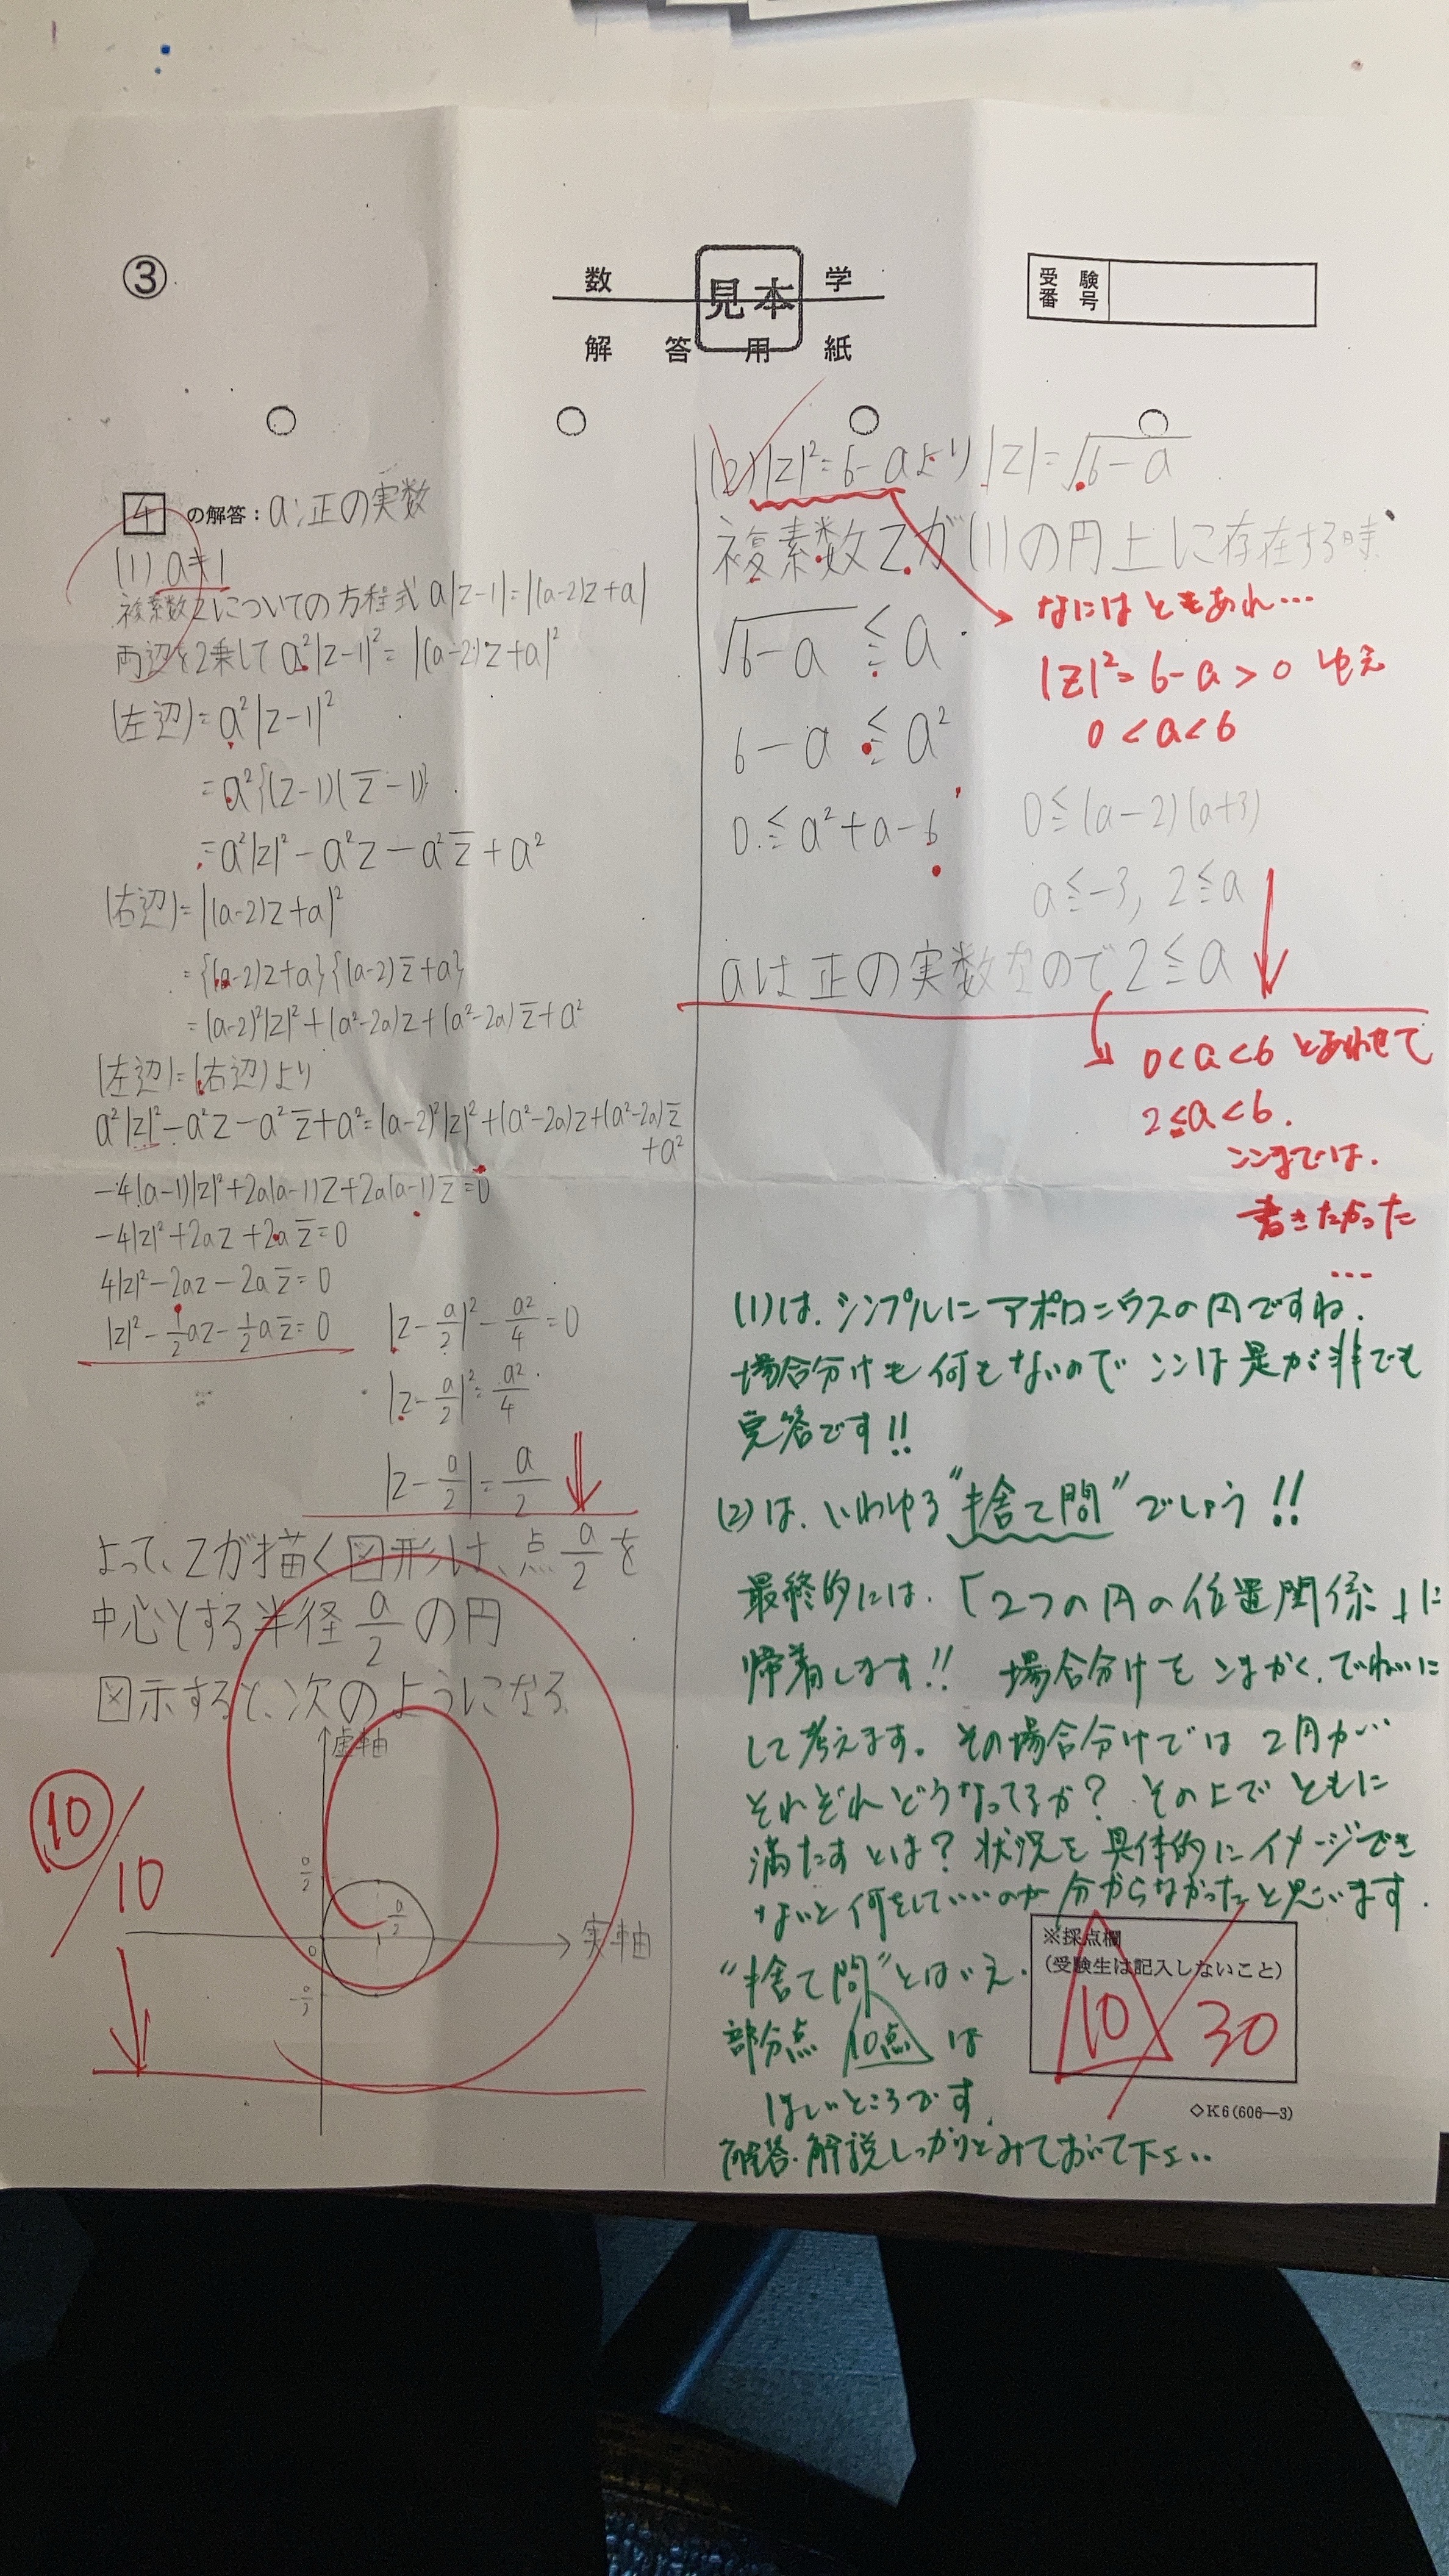 ③
数 学
見本
解 答 用 紙
受験番号
4 の解答: a:正の実数
(1) a≠1
複素数zについての方程式 a|z-1|=|(a-2)z+a|
両辺を2乗して a²|z-1|²=|(a-2)z+a|²
(左辺)=a²|z-1|²
=a²{(z-1)(z̅-1)}
=a²|z|²-a²z-a²z̅+a²
(右辺)=|(a-2)z+a|²
={(a-2)z+a}{(a-2)z̅+a}
=(a-2)²|z|²+(a²-2a)z+(a²-2a)z̅+a²
(左辺)=(右辺)より
a²|z|²-a²z-a²z̅+a²=(a-2)²|z|²+(a²-2a)z+(a²-2a)z̅
+a²
-4(a-1)|z|²+2a(a-1)z+2a(a-1)z̅=0
-4|z|²+2az+2az̅=0
4|z|²-2az-2az̅=0
|z|²-1/2az-1/2az̅=0
|z-a/2|²-a²/4=0
|z-a/2|²=a²/4
|z-a/2|=a/2
よって、zが描く図形は、点a/2を
中心とする半径a/2の円
図示すると、次のようになる
虚軸
a/2
a/2
実軸
0
-a/2
10/10
(2)|z|²=6-aより|z|=√6-a
複素数zが(1)の円上に存在する時、
√6-a≦a
6-a≦a²
0≦a²+a-6
0≦(a-2)(a+3)
a≦-3, 2≦a
aは正の実数なので2≦a
なにはともあれ…
|z|²=6-a>0 ゆえ
0<a<6
0<a<6とあわせて
2≦a<6.
ここまでは.
書きたかった
…
(1)は、シンプルにアポロニウスの円ですね.
場合分けも何もないので ここは是が非でも
完答です!!
(2)は、いわゆる"捨て問"でしょう!!
最終的には、「2つの円の位置関係」に
帰着します!! 場合分けを こまかく、ていねいに
して考えます。その場合分けでは 2円が…
それぞれどうなってるか? その上で ともに
満たすとは? 状況を具体的にイメージでき
ないと何をしていいのか分からなかったと思います.
"捨て問"とはいえ.
部分点 10点 は
ほしいところです.
解答・解説しっかりとみておいて下さい..
※採点欄
(受験生は記入しないこと)
10/30
◇K6(606—3)